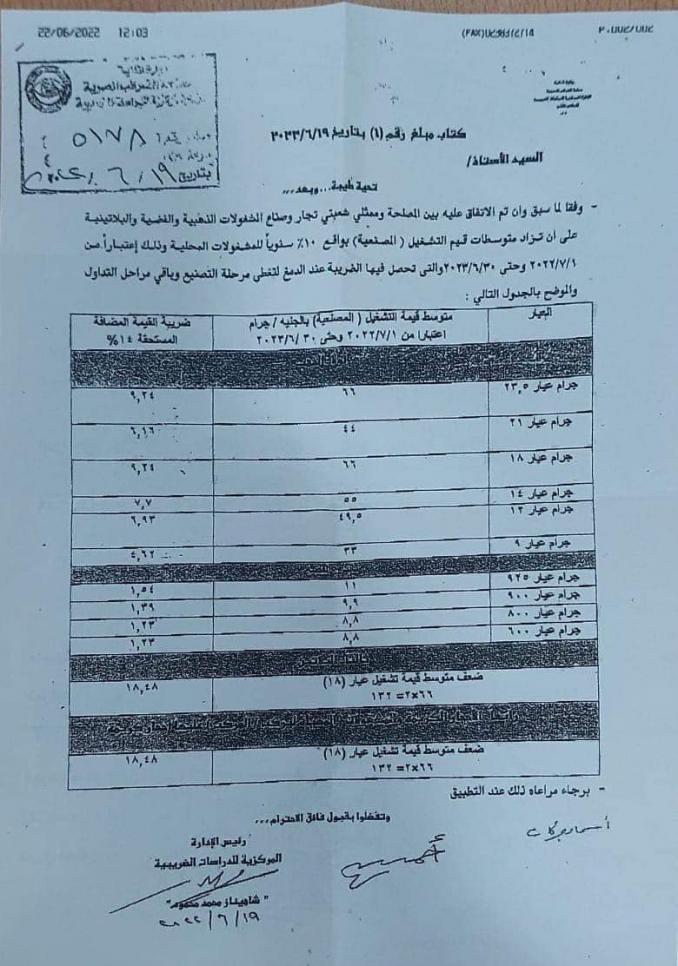 22/06/2022 12:03
(FAX)
مصلحة الضرائب المصرية
٥١٧٨
بتاريخ ٦/١٩/
كتاب مبلغ رقم (١) بتاريخ ٢٠٢٢/٦/١٩
السيد الأستاذ/
تحية طيبة... وبعد،،،
- وفقا لما سبق وان تم الاتفاق عليه بين المصلحة وممثلي شعبتي تجار وصناع المشغولات الذهبية والفضية والبلاتينية
على أن تزاد متوسطات قيم التشغيل ( المصنعية) بواقع ١٠٪ سنوياً للمشغولات المحلية وذلك إعتباراً من
٢٠٢٢/٧/١ وحتى ٢٠٢٣/٦/٣٠ والتى تحصل فيها الضريبة عند الدمغ لتغطى مرحلة التصنيع وباقي مراحل التداول
والموضح بالجدول التالي :
العيار متوسط قيمة التشغيل ( المصنعية) بالجنيه / جرام ضريبة القيمة المضافة
اعتبارا من ٢٠٢٢/٧/١ وحتى ٢٠٢٣/٦/٣٠ المستحقة ١٤%
جرام عيار ٢٣,٥ ٦٦ ٩,٢٤
جرام عيار ٢١ ٤٤ ٦,١٦
جرام عيار ١٨ ٦٦ ٩,٢٤
جرام عيار ١٤ ٥٥ ٧,٧
جرام عيار ١٢ ٤٩,٥ ٦,٩٣
جرام عيار ٩ ٣٣ ٤,٦٢
جرام عيار ٩٢٥ ١١ ١,٥٤
جرام عيار ٩٠٠ ٩,٩ ١,٣٩
جرام عيار ٨٠٠ ٨,٨ ١,٢٣
جرام عيار ٦٠٠ ٨,٨ ١,٢٣
ضعف متوسط قيمة تشغيل عيار (١٨) ١٨,٤٨
٦٦×٢= ١٣٢
ضعف متوسط قيمة تشغيل عيار (١٨) ١٨,٤٨
٦٦×٢= ١٣٢
- برجاء مراعاه ذلك عند التطبيق
وتفضلوا بقبول فائق الاحترام،،،
رئيس الإدارة
المركزية للدراسات الضريبية
"شاهيناز محمد محمود"
٢٠٢٢/٦/١٩